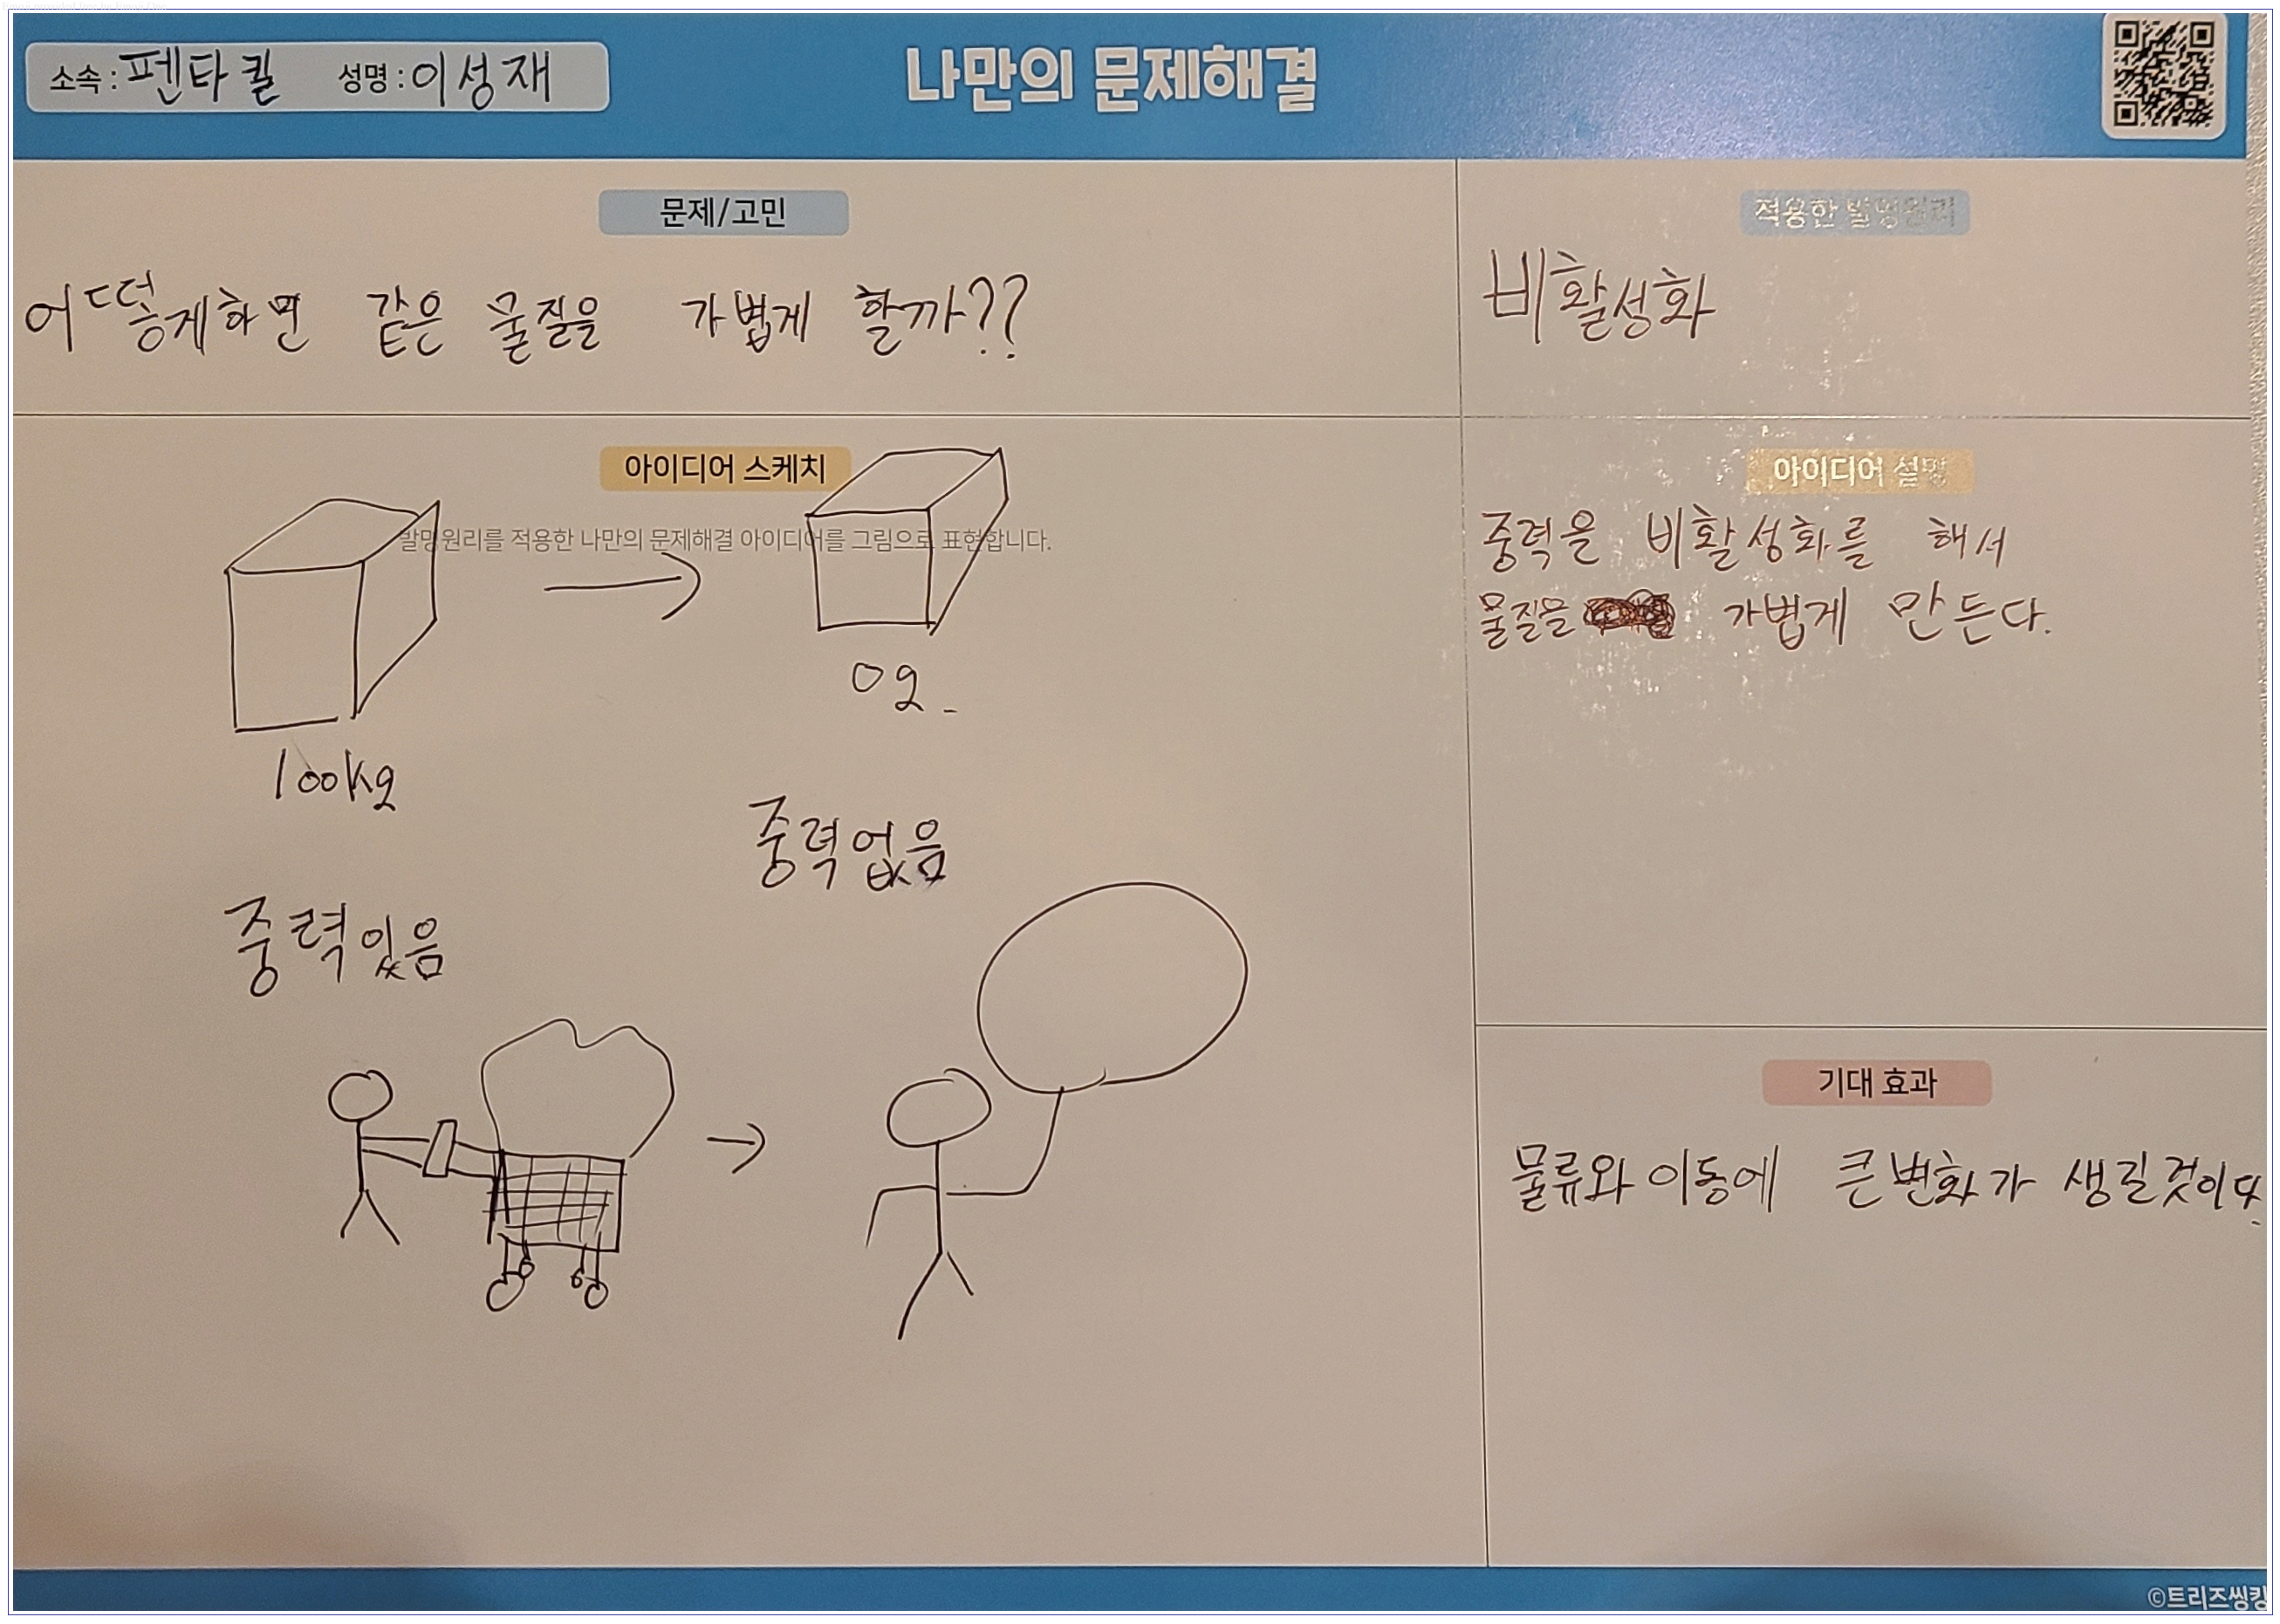 소속 : 펜타킬 성명 : 이성재
나만의 문제해결
문제/고민
어떻게하면 같은 물질을 가볍게 할까??
적용한 발명원리
비활성화
아이디어 스케치
발명원리를 적용한 나만의 문제해결 아이디어를 그림으로 표현합니다.
100kg
0g
중력있음
중력없음
아이디어 설명
중력을 비활성화를 해서
물질을 가볍게 만든다.
기대 효과
물류와 이동에 큰 변화가 생길것이다.
©트리즈씽킹